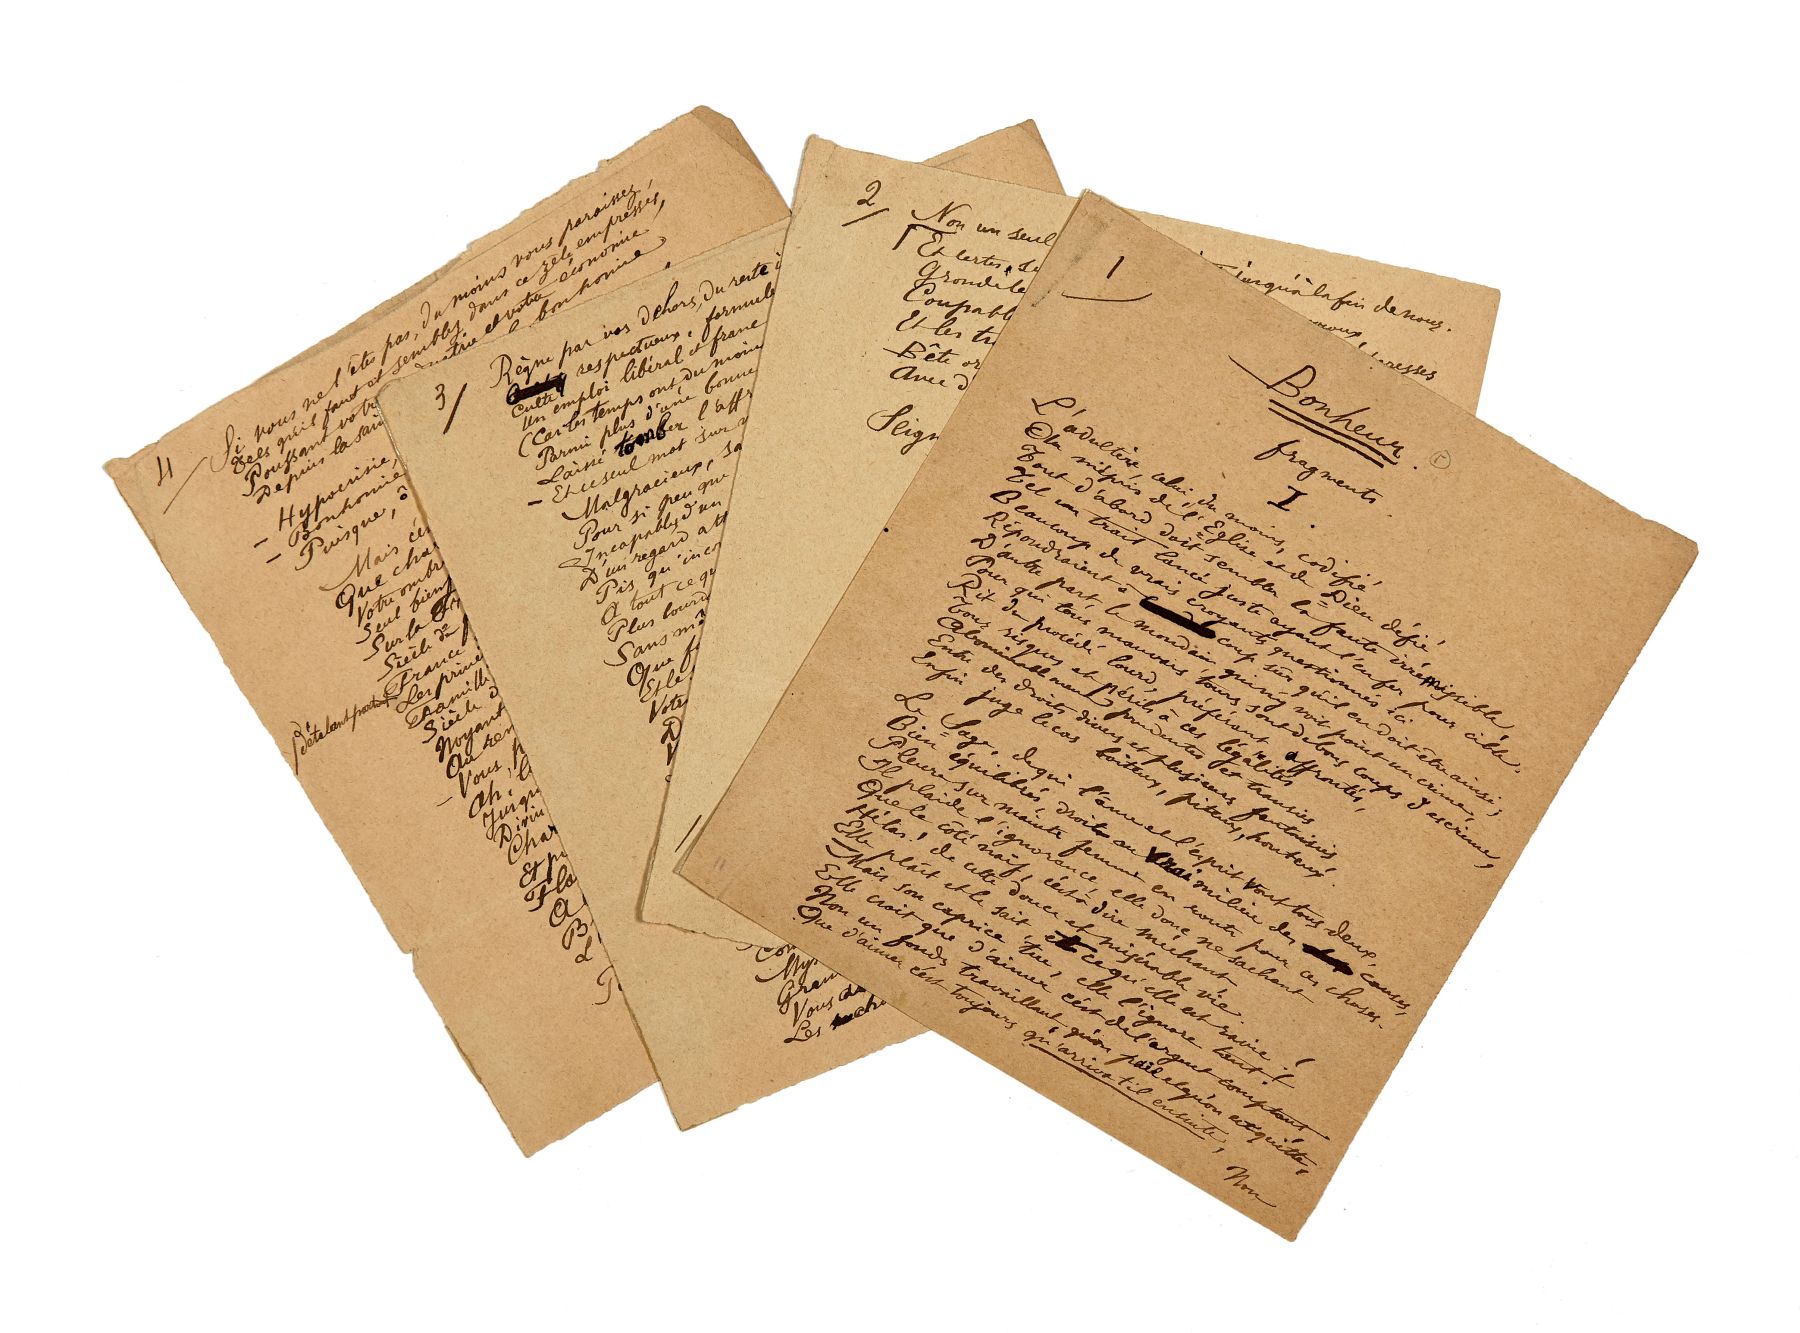 1
Bonheur.
fragments.
I.
L'adultère, celui du moins, codifié
Au mépris de l'Eglise et de Dieu défié,
Tout d'abord doit sembler la faute irrémissible,
Tel un trait lancé juste, ayant l'enfer pour cible.
Beaucoup de vrais croyants questionnés ici
Répondraient à coup sûr qu'il en doit être ainsi;
D'autre part le mondain qui n'y voit point un crime,
Pour qui tous mauvais tours sont de bons coups d'escrime,
Rit du procédé lourd, préférant affrontés,
Tous risques et périls à ces légalités
Abominablement prudentes et transies
Entre des droits divers et plusieurs fantaisies,
Enfin juge le cas boiteux, piteux, honteux.
Le Sage, de qui l'âme et l'esprit vont tous deux,
Bien équilibrés, droits au vrai milieu des causes,
Pleure sur mainte femme en route pour ces choses.
Il plaide l'ignorance, elle donc ne sachant
Que le côté naïf, c'est à dire méchant
Hélas! de cette douce et misérable vie.
Elle plaît et le sait et ce qu'elle est ravie!
Mais son caprice tue, elle l'ignore tant!
Elle croit que d'aimer c'est de l'argent comptant
Non un fonds travaillant, qu'on paie et qu'on est quitte,
Que d'aimer c'est toujours qu'arriva t'il ensuite,
Non
2
Non un seul
jusqu'à la fin de nous.
Et certes
Gronde
Et les
Bête
Avec
3
Règne par vos dehors, du reste
Culte respectueux, formule
Un emploi libéral et franc
(Car les temps ont du moins
Parmi plus d'une bonne
Laissé tomber l'aff
– Et ce seul mot sur
Malgracieux, sa
Pour si peu que
Incapables d'un
D'un regard att
Pis, qu'inco
A tout ce qu
Plus lourd
Sans
Que
Et le
4
Si vous ne l'êtes pas, du moins vous paraissez,
Tels qu'il faut et semblez dans ce zèle empressés,
Poussant votre et votre économie
Depuis la bonhomie
– Hypocrisie,
– Bonhomie
Puisque,
Mais c'es
Que cha
Votre ombre
Seul bien
Sur la
Siècle de
France
Les prim
Famille
Siècle
Noyant
Vous
Ah!
Jusqu
Divin
Vous
Les